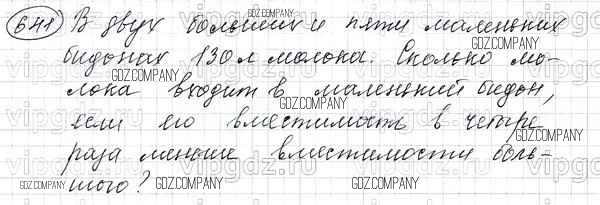 641 В двух больших и пяти маленьких
бидонах 130 л молока. Сколько мо-
лока входит в маленький бидон,
если его вместимость в четыре
раза меньше вместимости боль-
шого?
GDZ.COMPANY
GDZ.COMPANY
GDZ.COMPANY
GDZ.COMPANY
GDZ.COMPANY
GDZ.COMPANY
GDZ.COMPANY
GDZ.COMPANY
GDZ.COMPANY
vipgdz
vipgdz
vipgdz